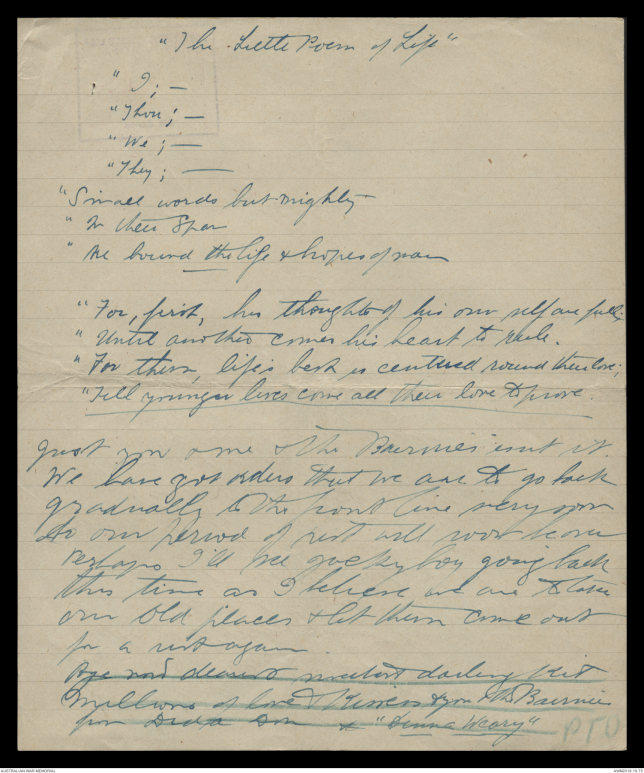 "The Little Poem of Life"
" I; —
"Thou; —
" We; —
"They; —
"Small words but mighty
" In their Span
" Are bound the life & hopes of man
"For, first, his thoughts of his own self are full;
" Until another comes his heart to rule.
"For them, life's best is centred round their love;
"Till younger lives come all their love to prove.
Just you & me & the Bairnies isnt it
We have got orders that we are to go back
gradually to the front line very soon
so our period of rest will soon be over
Perhaps I'll see Jocky boy going back
this time as I believe we are to take
our old places & let them come out
for a rest again
Bye now dearest sweetest darling Kit
Millions of love & Kisses to you & the Bairnies
from Dida Don x "Dinna Weary"
PTO
AUSTRALIAN WAR MEMORIAL